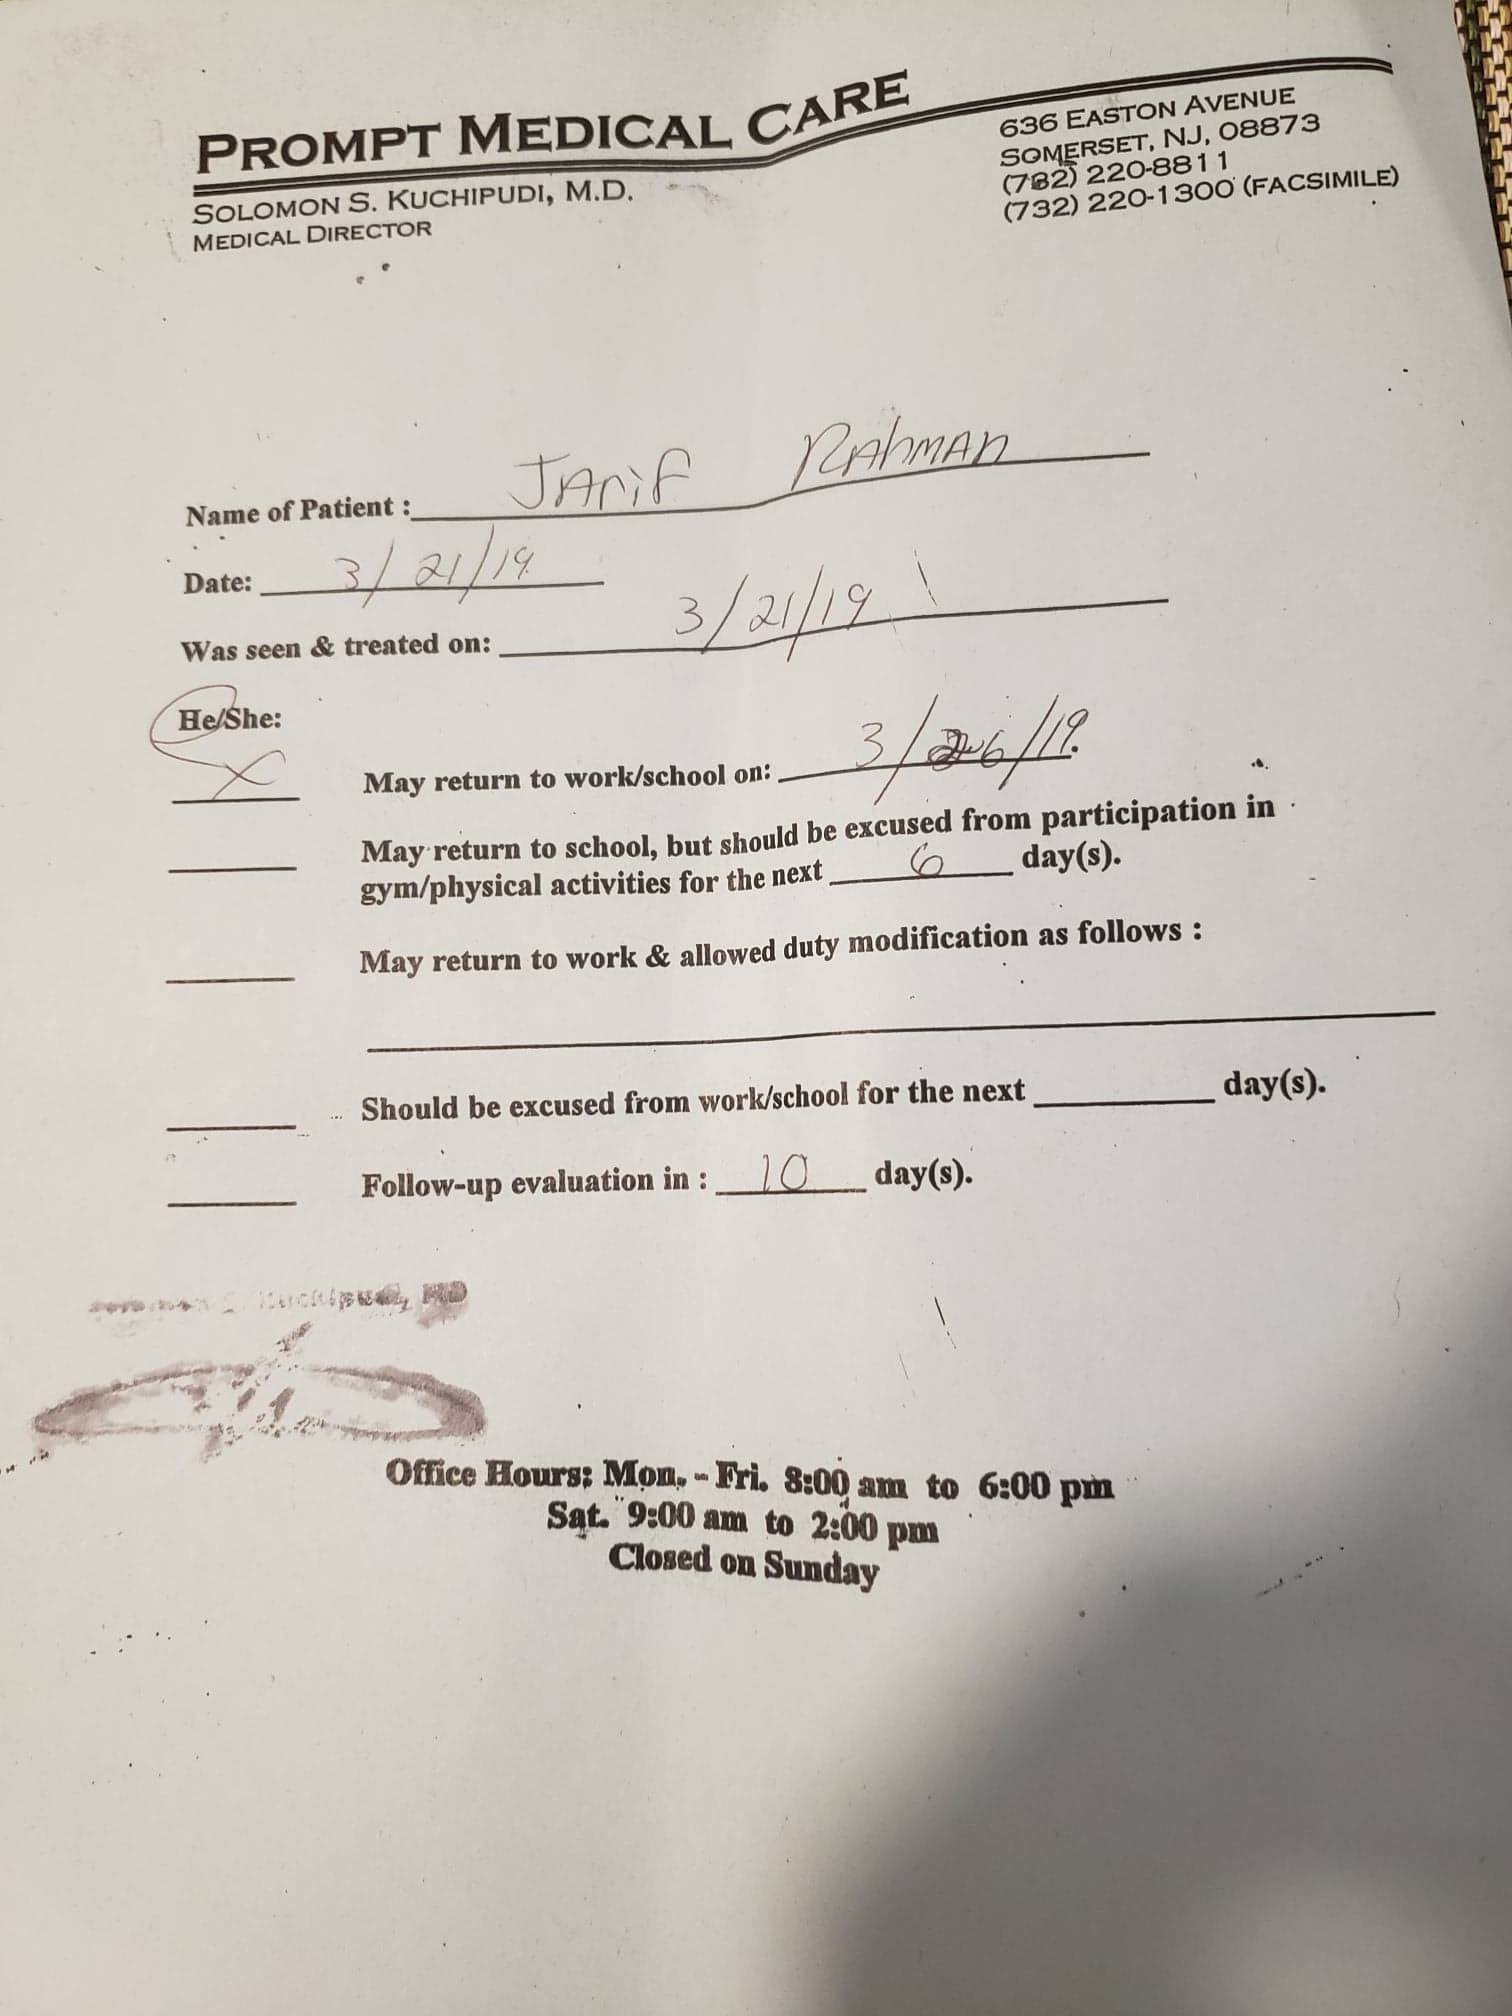 PROMPT MEDICAL CARE
SOLOMON S. KUCHIPUDI, M.D.
MEDICAL DIRECTOR
636 EASTON AVENUE
SOMERSET, NJ, 08873
(732) 220-8811
(732) 220-1300 (FACSIMILE)
Name of Patient : JARIF RAHMAN
Date: 3/21/19
Was seen & treated on: 3/21/19
He/She:
X May return to work/school on: 3/26/19.
May return to school, but should be excused from participation in
gym/physical activities for the next 6 day(s).
May return to work & allowed duty modification as follows :
Should be excused from work/school for the next day(s).
Follow-up evaluation in : 10 day(s).
Kuchipudi, MD
Office Hours: Mon. - Fri. 8:00 am to 6:00 pm
Sat. 9:00 am to 2:00 pm
Closed on Sunday